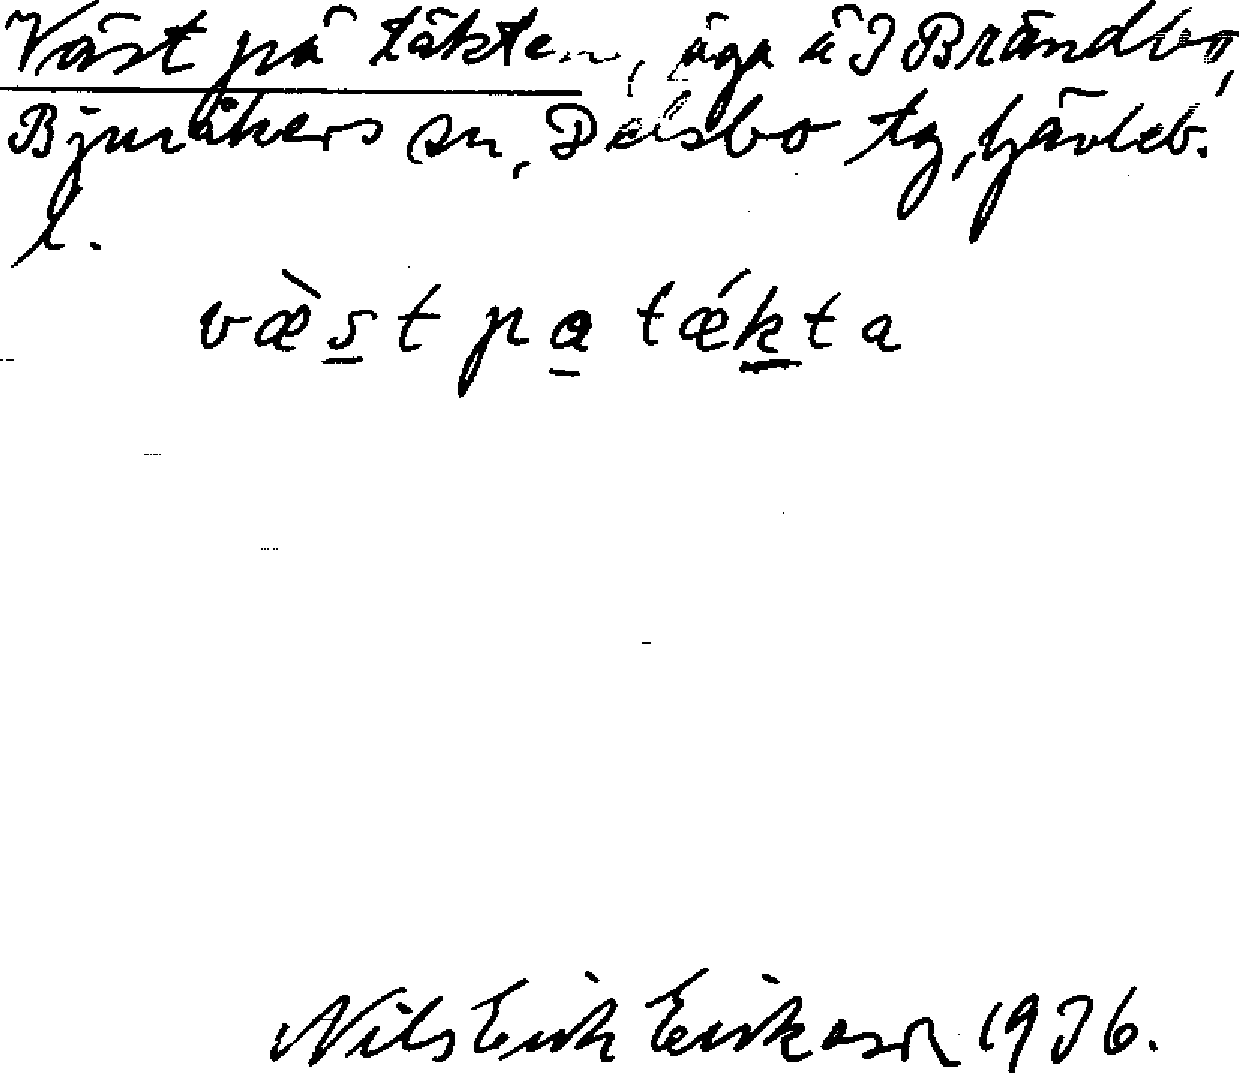 Väst på täkten, äga å 3 Brändbo,
Bjuråkers sn, Delsbo tg, Gävleb.
l.
væ̀st pa tǽkta
Nils Erik Eriksson 1936.